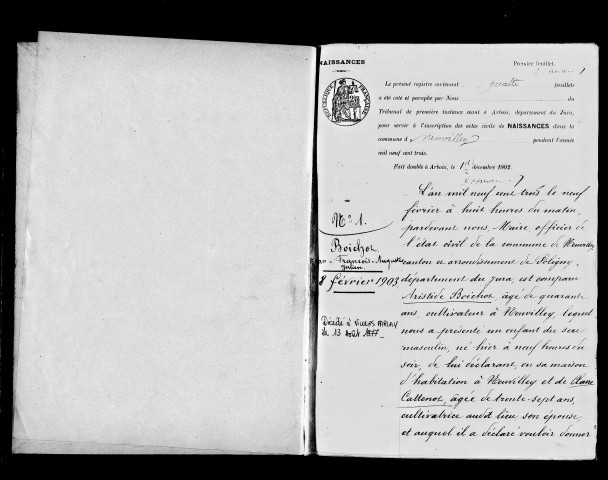 NAISSANCES
Premier feuillet.
RÉPUBLIQUE FRANÇAISE
Le présent registre contenant quatre feuillets
a été coté et paraphé par Nous du
Tribunal de première instance séant à Arbois, département du Jura,
pour servir à l'inscription des actes civils de NAISSANCES dans la
commune d Neuvilley pendant l'année
mil neuf cent trois.
Fait double à Arbois, le 1er décembre 1902.
N° 1.
Boichot
François Auguste
Julien
8 février 1903
Décédé à VILLERS FARLAY
le 13 août 1977
L'an mil neuf cent trois le neuf
février à huit heures du matin,
pardevant nous, Maire officier de
l'état civil de la commune de Neuvilley,
canton et arrondissement de Poligny,
département du Jura, est comparu
Aristide Boichot, âgé de quarante
ans, cultivateur à Neuvilley, lequel
nous a présenté un enfant du sexe
masculin, né hier à neuf heures du
soir, de lui déclarant, en sa maison
d'habitation à Neuvilley et de Claire
Cattenoz, âgée de trente-sept ans,
cultivatrice audit lieu, son épouse,
et auquel il a déclaré vouloir donner